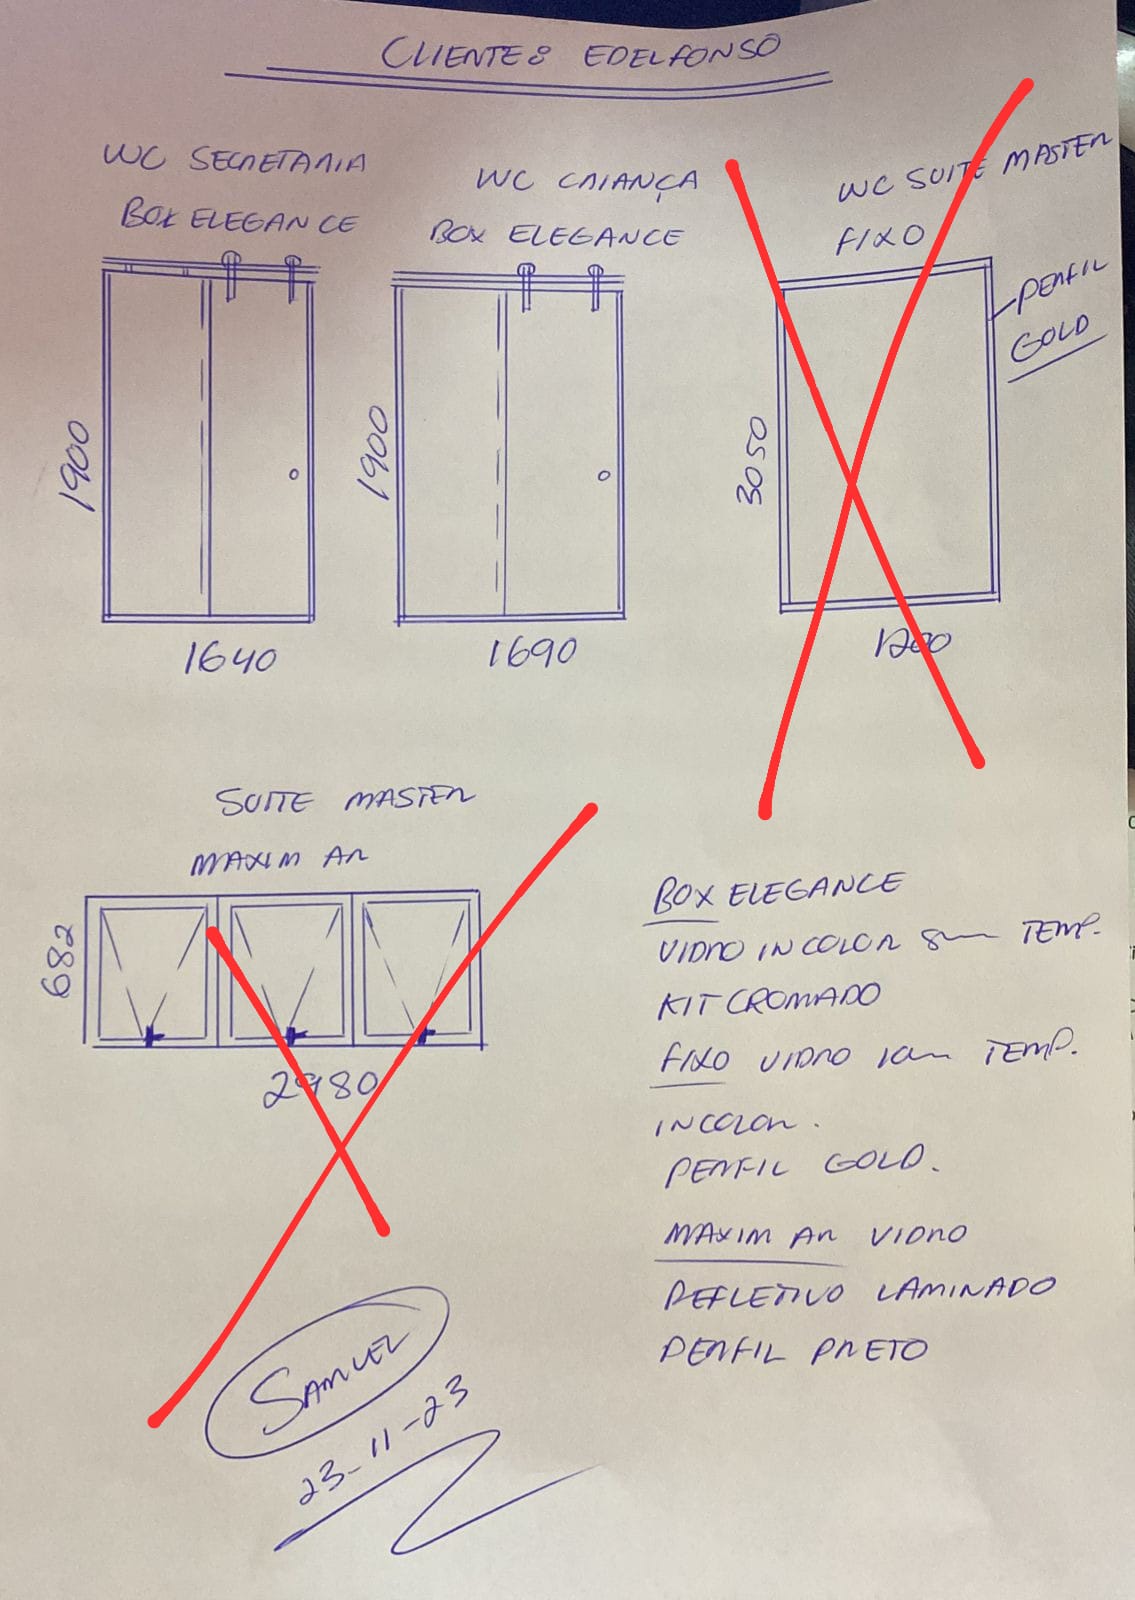 CLIENTE: EDELFONSO
WC SECRETARIA
BOX ELEGANCE
1900
1640
WC CRIANÇA
BOX ELEGANCE
1900
1690
WC SUITE MASTER
FIXO
PERFIL
GOLD
3050
1200
SUITE MASTER
MAXIM AR
682
2980
BOX ELEGANCE
VIDRO INCOLOR 8mm TEMP.
KIT CROMADO
FIXO VIDRO 10mm TEMP.
INCOLOR.
PERFIL GOLD.
MAXIM AR VIDRO
REFLETIVO LAMINADO
PERFIL PRETO
SAMUEL
23-11-23